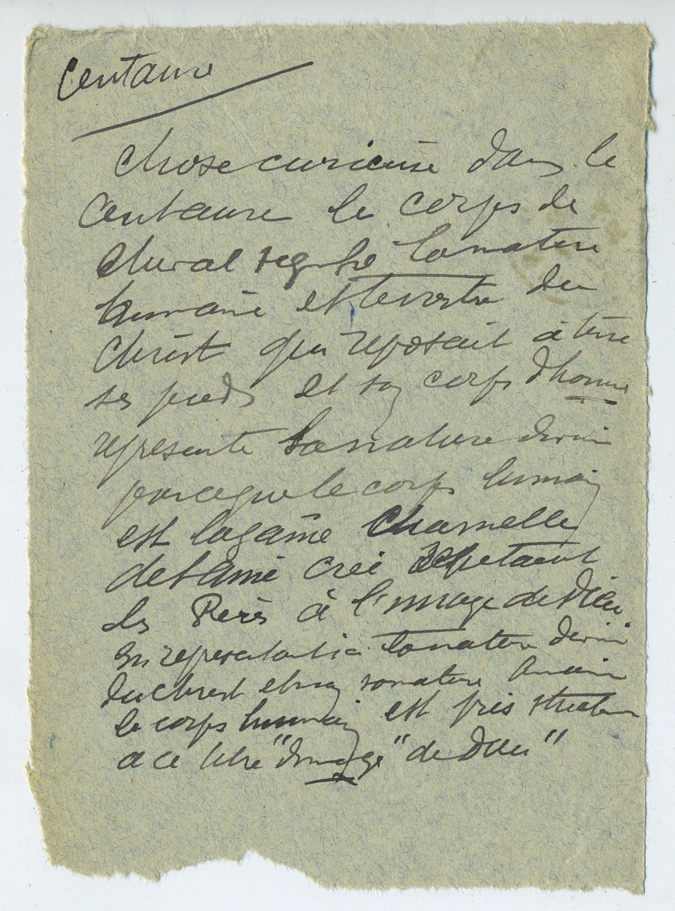 Centaure
Chose curieuse dans le
Centaure le corps de
cheval la nature
humaine et terrestre du
Christ qui reposait à terre
ses pieds et son corps d'homme
représente sa nature divine
parce que le corps humain
est la gaine charnelle
de l'âme créé
les Pères à l'image de Dieu
la nature divine
du Christ et non sa nature humaine
le corps humain est pris
à ce titre "image" de Dieu"